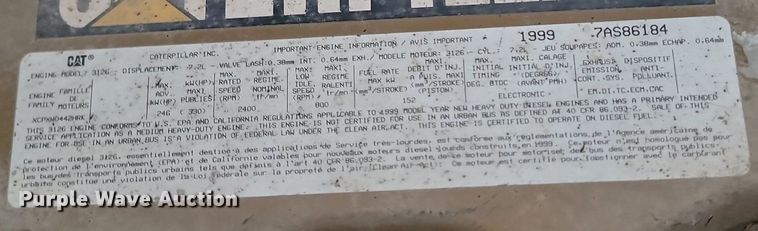 CATERPILLAR
1999 7AS86184
CAT CATERPILLAR INC. IMPORTANT ENGINE INFORMATION / AVIS IMPORTANT
ENGINE MODEL: 3126- DISPLACEMENT -7.2L - VALVE LASH: 0.38mm INT. 0.64mm EXH./ MODELE MOTEUR: 3126- CYL.: 7.2L- JEU SOUPAPES: ADM. 0.38mm ECHAP. 0.64mm
ENGINE FAMILY FAMILLE DE MOTEURS
MAX. KW(HP) SPEED (RPM) MAXI. REGIME NOMINAL LOW IDLE SPEED REGIME RALENTI FUEL RATE MAX kW DEBIT D'INJ. A PUIS. MAXI INITIAL TIMING CALAGE INITIAL INJ. (DEGRES) EXHAUST EMISSION CONT. SYS. DISPOSITIF ANTI-POLLUANT
kW(HP) PUBLIES (RPM) (mm³/STROKE) (PISTON) ELECTRONIC EM.DI.TC.ECM.CAC
246 ( 330) 2400 800 152
THIS 3126 ENGINE CONFORMS TO U.S. EPA AND CALIFORNIA REGULATIONS APPLICABLE TO 1999 MODEL YEAR NEW HEAVY DUTY DIESEL ENGINES AND HAS A PRIMARY INTENDED
SERVICE APPLICATION AS A MEDIUM HEAVY-DUTY ENGINE. THIS ENGINE IS NOT INTENDED FOR USE IN AN URBAN BUS AS DEFINED AT 40 CFR 86.093-2. SALE OF THIS
ENGINE FOR USE IN AN URBAN BUS IS A VIOLATION OF FEDERAL LAW UNDER THE CLEAN AIR ACT. THIS ENGINE IS CERTIFIED TO OPERATE ON DIESEL FUEL.
Ce moteur diesel 3126, essentiellement destiné à des applications de Service très-lourdes, est conforme aux réglementations de l'Agence américaine de
protection de l'environnement (EPA) et de Californie valables pour nouveaux moteurs diesel lourds construits en 1999. Ce moteur n'est homologué pas pour
les bus des transports publics urbains tels que définis à l'art 40 CFR 86.093-2. La vente de ce moteur pour motoriser des bus des transports publics
urbains constitue une violation de la Loi fédérale sur la propreté de l'air (Clean Air Act). Ce moteur est certifié pour fonctionner avec le carburant
Purple Wave Auction